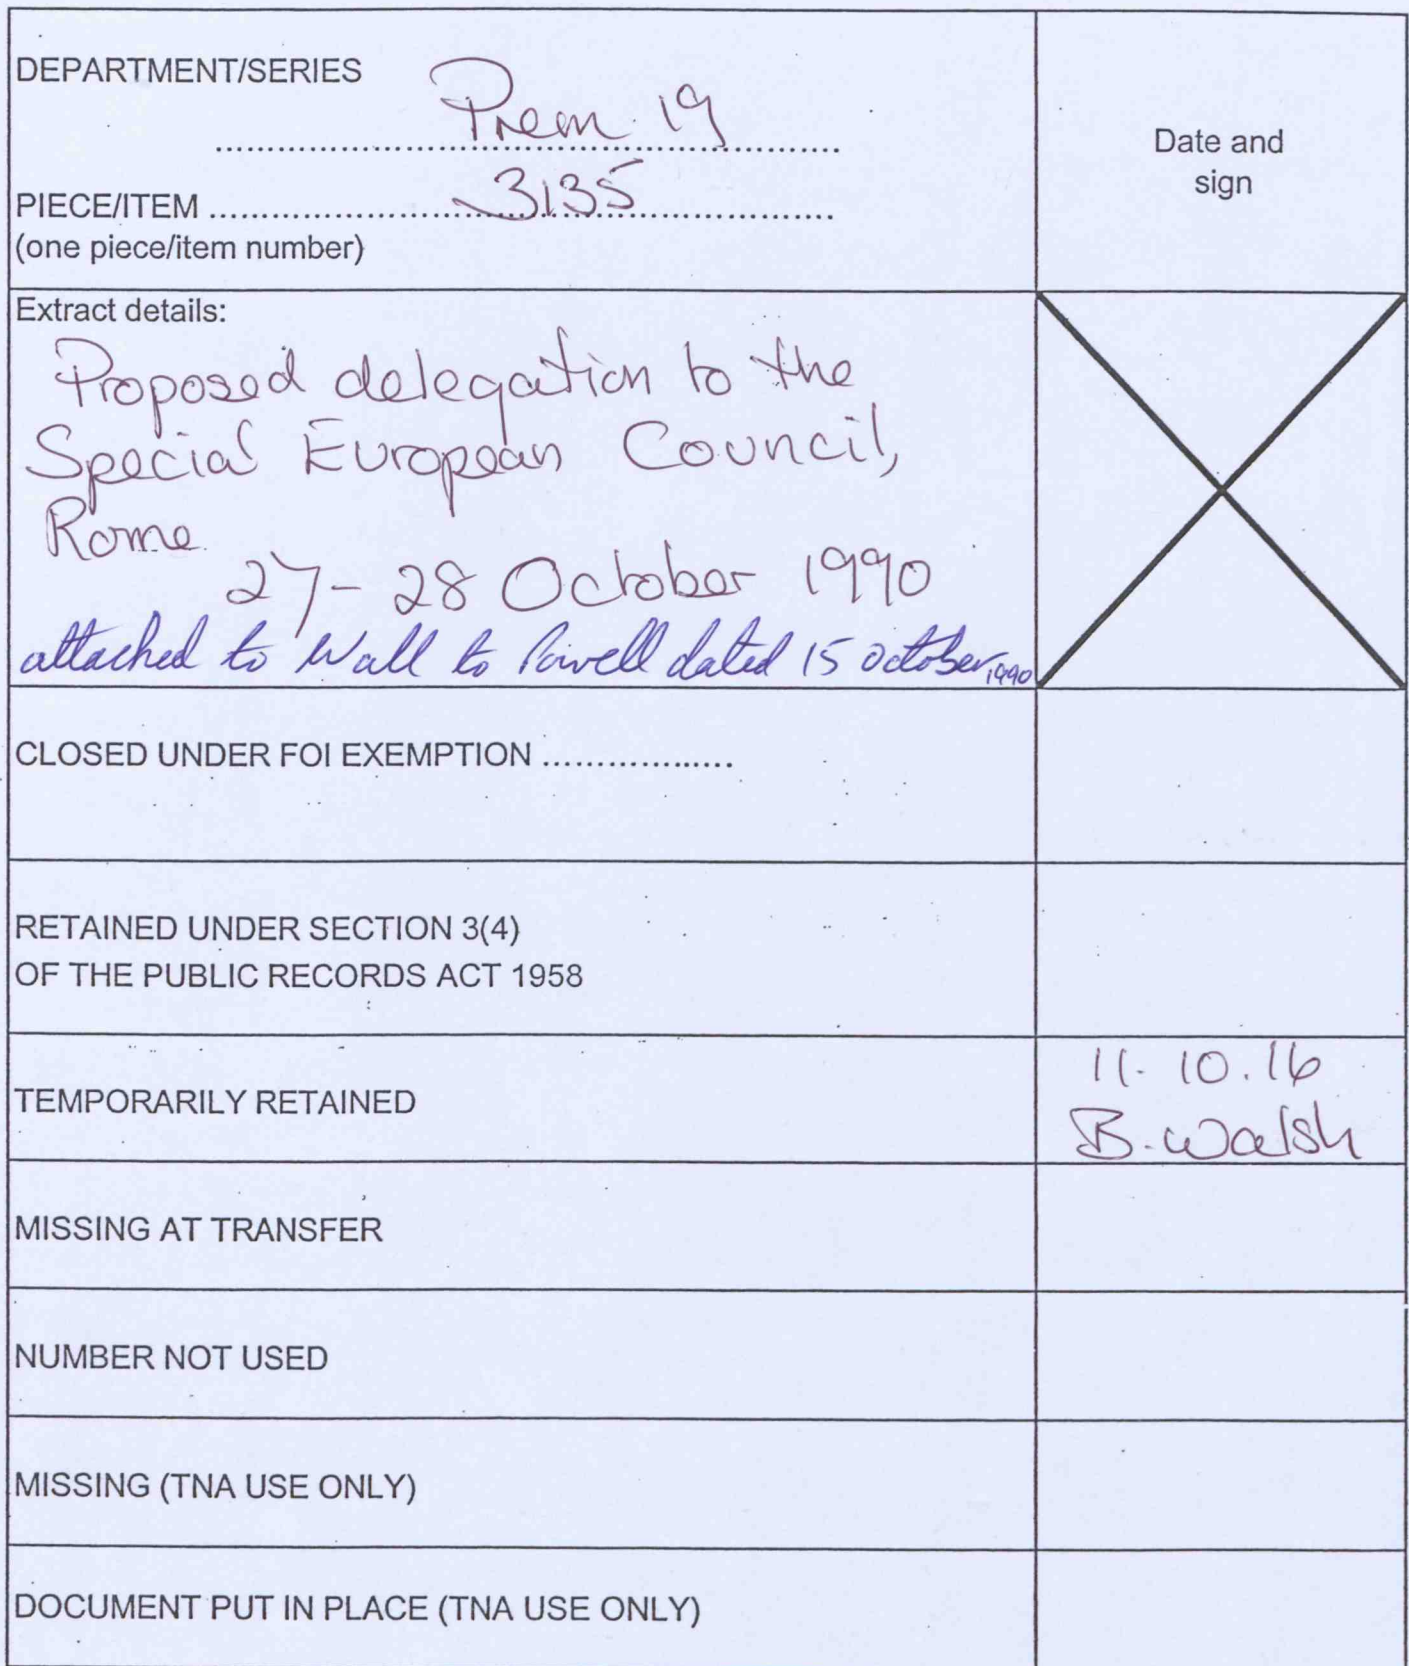 DEPARTMENT/SERIES
Prem 19
Date and
sign
PIECE/ITEM 3135
(one piece/item number)
Extract details:
Proposed delegation to the
Special European Council,
Rome
27-28 October 1990
attached to Wall to Powell dated 15 October 1990
CLOSED UNDER FOI EXEMPTION ..................
RETAINED UNDER SECTION 3(4)
OF THE PUBLIC RECORDS ACT 1958
TEMPORARILY RETAINED
11.10.16
B. Walsh
MISSING AT TRANSFER
NUMBER NOT USED
MISSING (TNA USE ONLY)
DOCUMENT PUT IN PLACE (TNA USE ONLY)